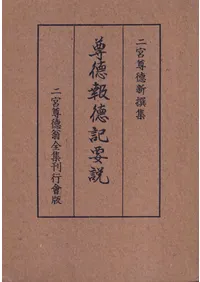 二宮尊德新撰集
尊德報德記要説
二宮尊德翁全集刊行會版